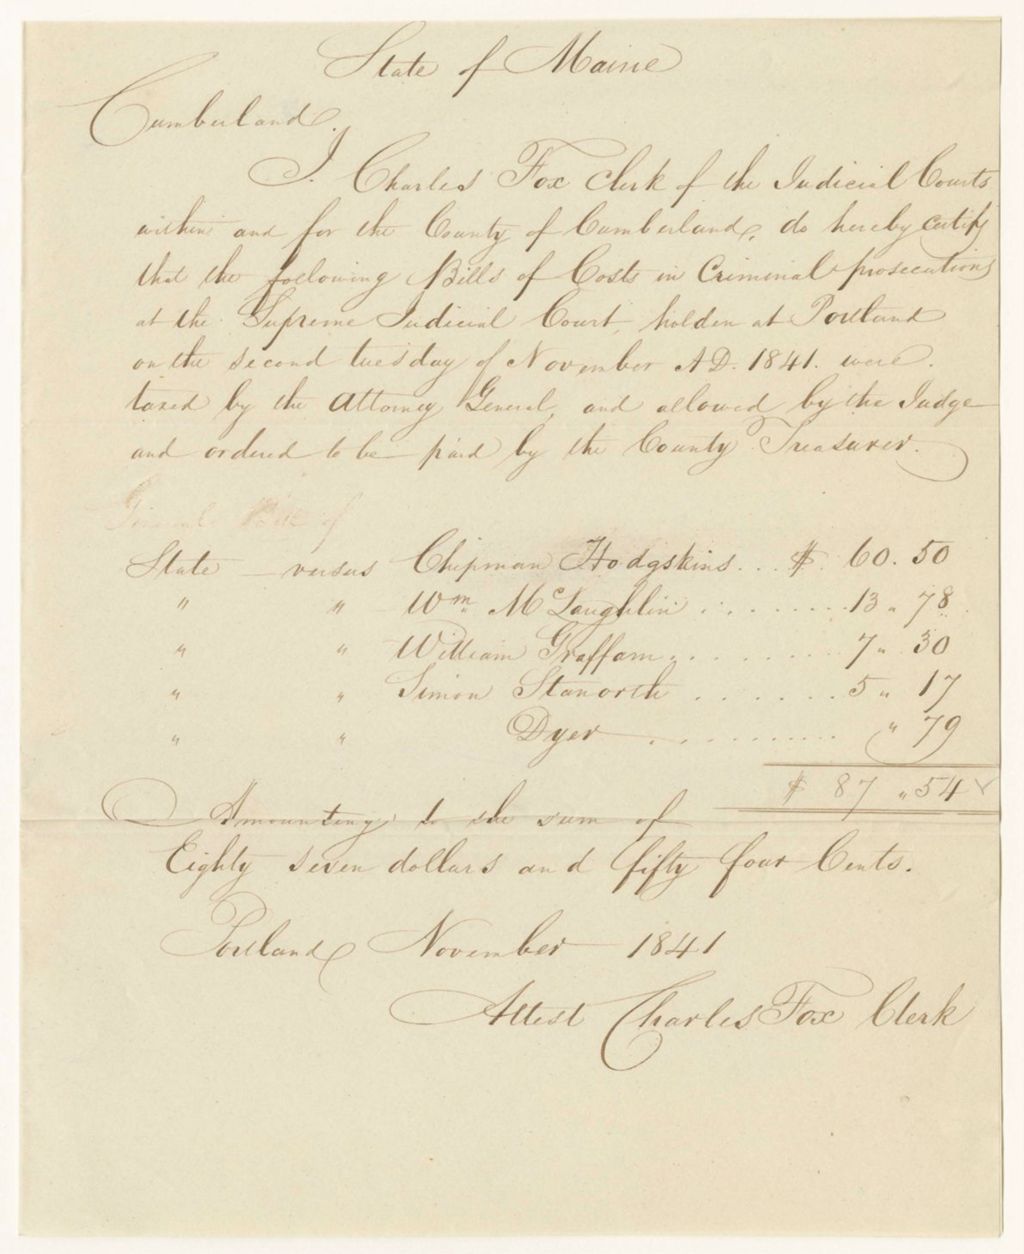 State of Maine
Cumberland.
I. Charles Fox Clerk of the Judicial Courts
within and for the County of Cumberland, do hereby certify
that the following Bills of Costs in Criminal prosecutions
at the Supreme Judicial Court, holden at Portland
on the second tuesday of November A.D. 1841. were
taxed by the Attorney General, and allowed by the Judge
and ordered to be paid by the County Treasurer.
General Bill of
State versus Chipman Hodgskins... $ 60.50
" " Wm McLaughlin ......... 13 " 78
" " William Graffam ......... 7 " 30
" " Simon Stanorth ....... 5 " 17
" " Dyer .......... " 79
$ 87 " 54
Amounting to the sum of
Eighty seven dollars and fifty four Cents.
Portland November 1841
Attest Charles Fox Clerk